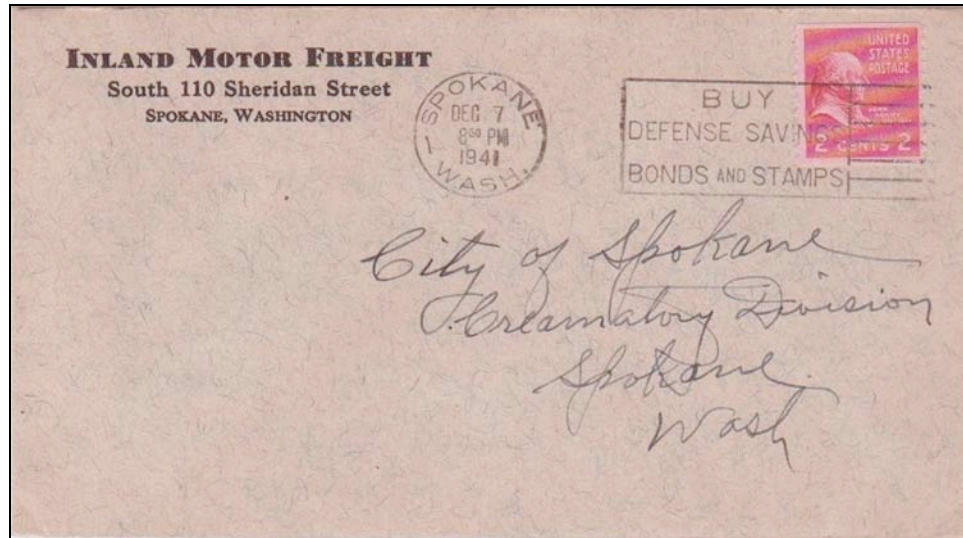 INLAND MOTOR FREIGHT
South 110 Sheridan Street
SPOKANE, WASHINGTON
SPOKANE
DEC 7
8 30 PM
1941
WASH.
1
BUY
DEFENSE SAVINGS
BONDS AND STAMPS
UNITED
STATES
POSTAGE
2 CENTS 2
City of Spokane
Creamatory Division
Spokane
Wash